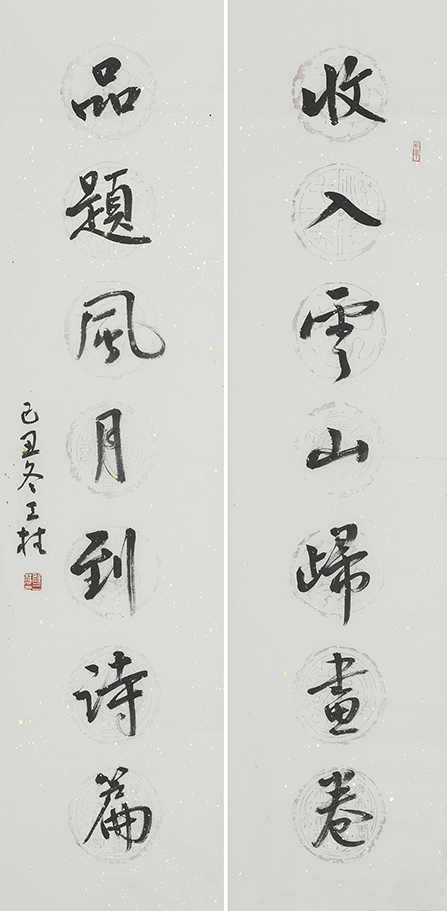 收入雲山歸畫卷
品題風月到詩篇
己丑冬王桂